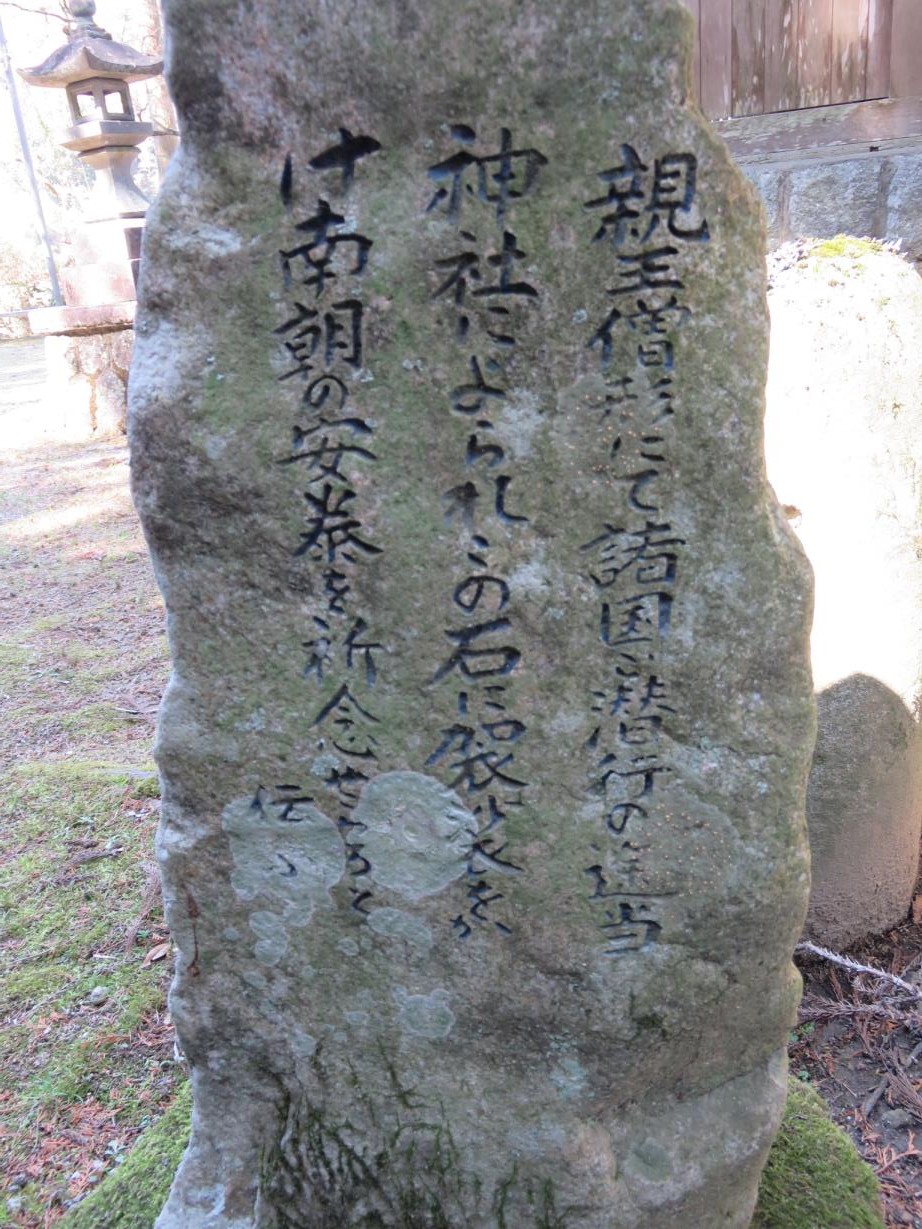 親王僧形にて諸国ご潜行の途当
神社によられこの石に袈裟をか
け南朝の安泰を祈念せらると
伝ふ